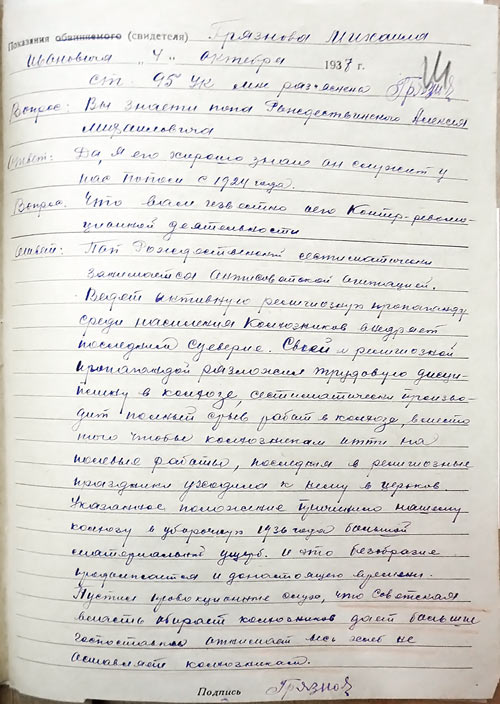 Показания обвиняемого (свидетеля) Грязнова Михаила
Ивановича „4" октября 1937 г.
ст. 95 УК мне разяснена Грязнов
Вопрос: Вы знаети попа Рождественского Алексея
Михаиловича
Ответ: Да, я его хорошо знаю он служит у
нас попом с 1924 года.
Вопрос: Что вам известно аего Контр-револю-
ционной деятельности
Ответ: Поп Рождественский систиматически
занимается антисоветской агитацией.
Ведет активную религиозную пропаганду
среди насиления Колхозников внедряет
последним суеверие. Своей религиозной
пропагандой разложил трудовую дисци-
плину в колхозе, систиматически произво-
дит полный срыв работ в колхозе, вместо
того чтобы колхозникам итти на
полевые работы, последния в религиозные
праздники уходили к нему в церковь
Указанное положение причинило нашему
колхозу в уборочную 1936 года большой
материальный ущерб. и это безобразие
продолжается и донастоящего времени.
Пустил провакционные слухи, что Советская
власть абирает колхозников дает большие
госпоставки атнимает весь хлеб не
аставляет колхозникам.
Подпись Грязнов